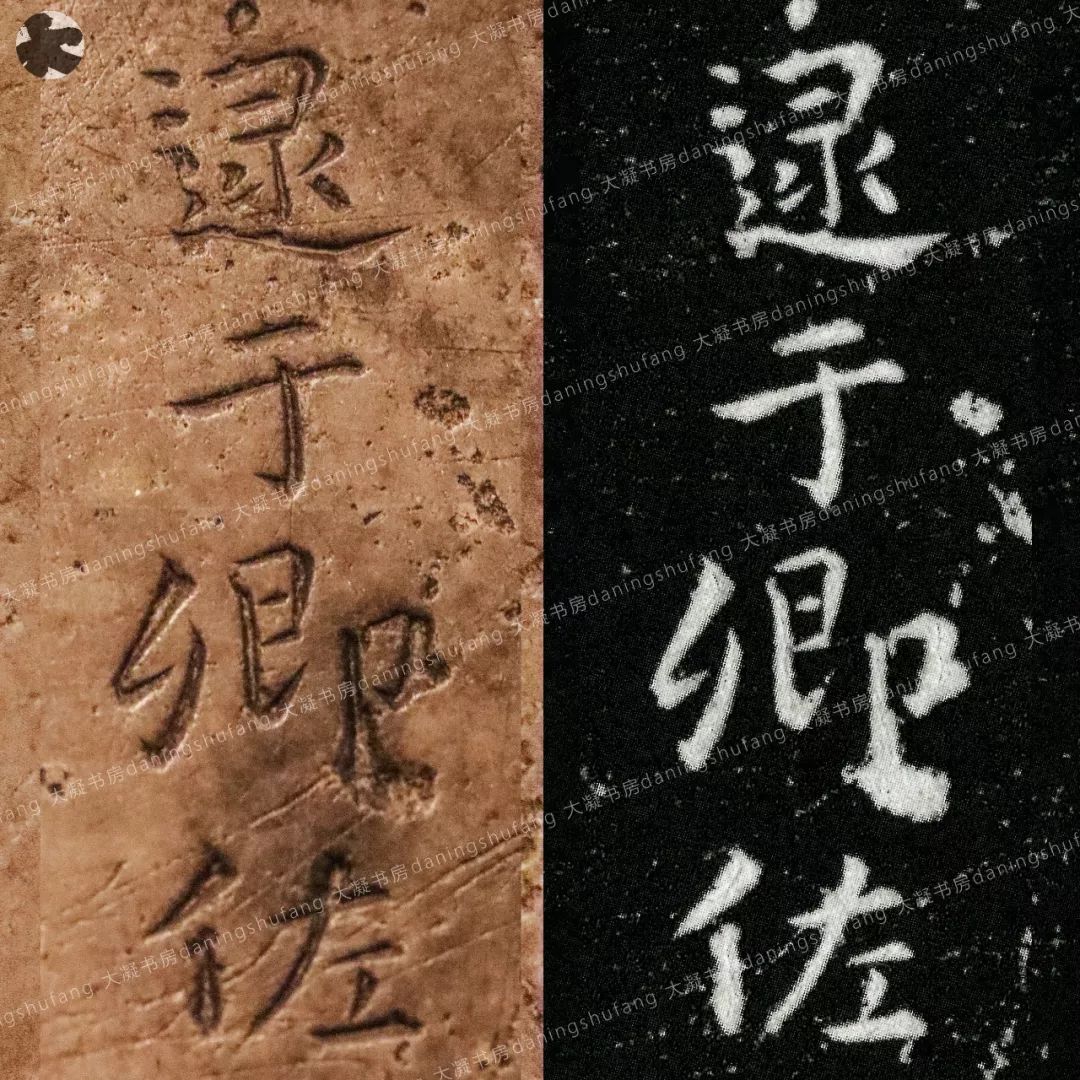 逮于卿佐
逮于卿佐
大凝书房daningshufang